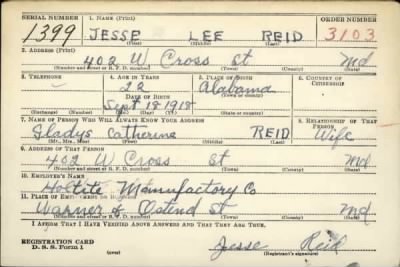 SERIAL NUMBER 1. NAME (Print) ORDER NUMBER
1399 JESSE LEE REID 3103
(First) (Middle) (Last)
2. ADDRESS (Print)
402 W Cross St Md
(Number and street or R. F. D. number) (Town) (County) (State)
3. TELEPHONE 4. AGE IN YEARS 5. PLACE OF BIRTH 6. COUNTRY OF CITIZENSHIP
22 Alabama
DATE OF BIRTH (Town or county)
Sept 18 1918
(Exchange) (Number) (Mo.) (Day) (Yr.) (State or country)
7. NAME OF PERSON WHO WILL ALWAYS KNOW YOUR ADDRESS 8. RELATIONSHIP OF THAT PERSON
Gladys Catherine REID Wife
(Mr., Mrs., Miss) (First) (Middle) (Last)
9. ADDRESS OF THAT PERSON
402 W Cross St Md
(Number and street or R. F. D. number) (Town) (County) (State)
10. EMPLOYER'S NAME
Holtite Manufactory Co
11. PLACE OF EMPLOYMENT OR BUSINESS
Warner & Ostend St Md
(Number and street or R. F. D. number) (Town) (County) (State)
I AFFIRM THAT I HAVE VERIFIED ABOVE ANSWERS AND THAT THEY ARE TRUE.
REGISTRATION CARD
D. S. S. Form 1 (over) Jesse Reid
(Registrant's signature)